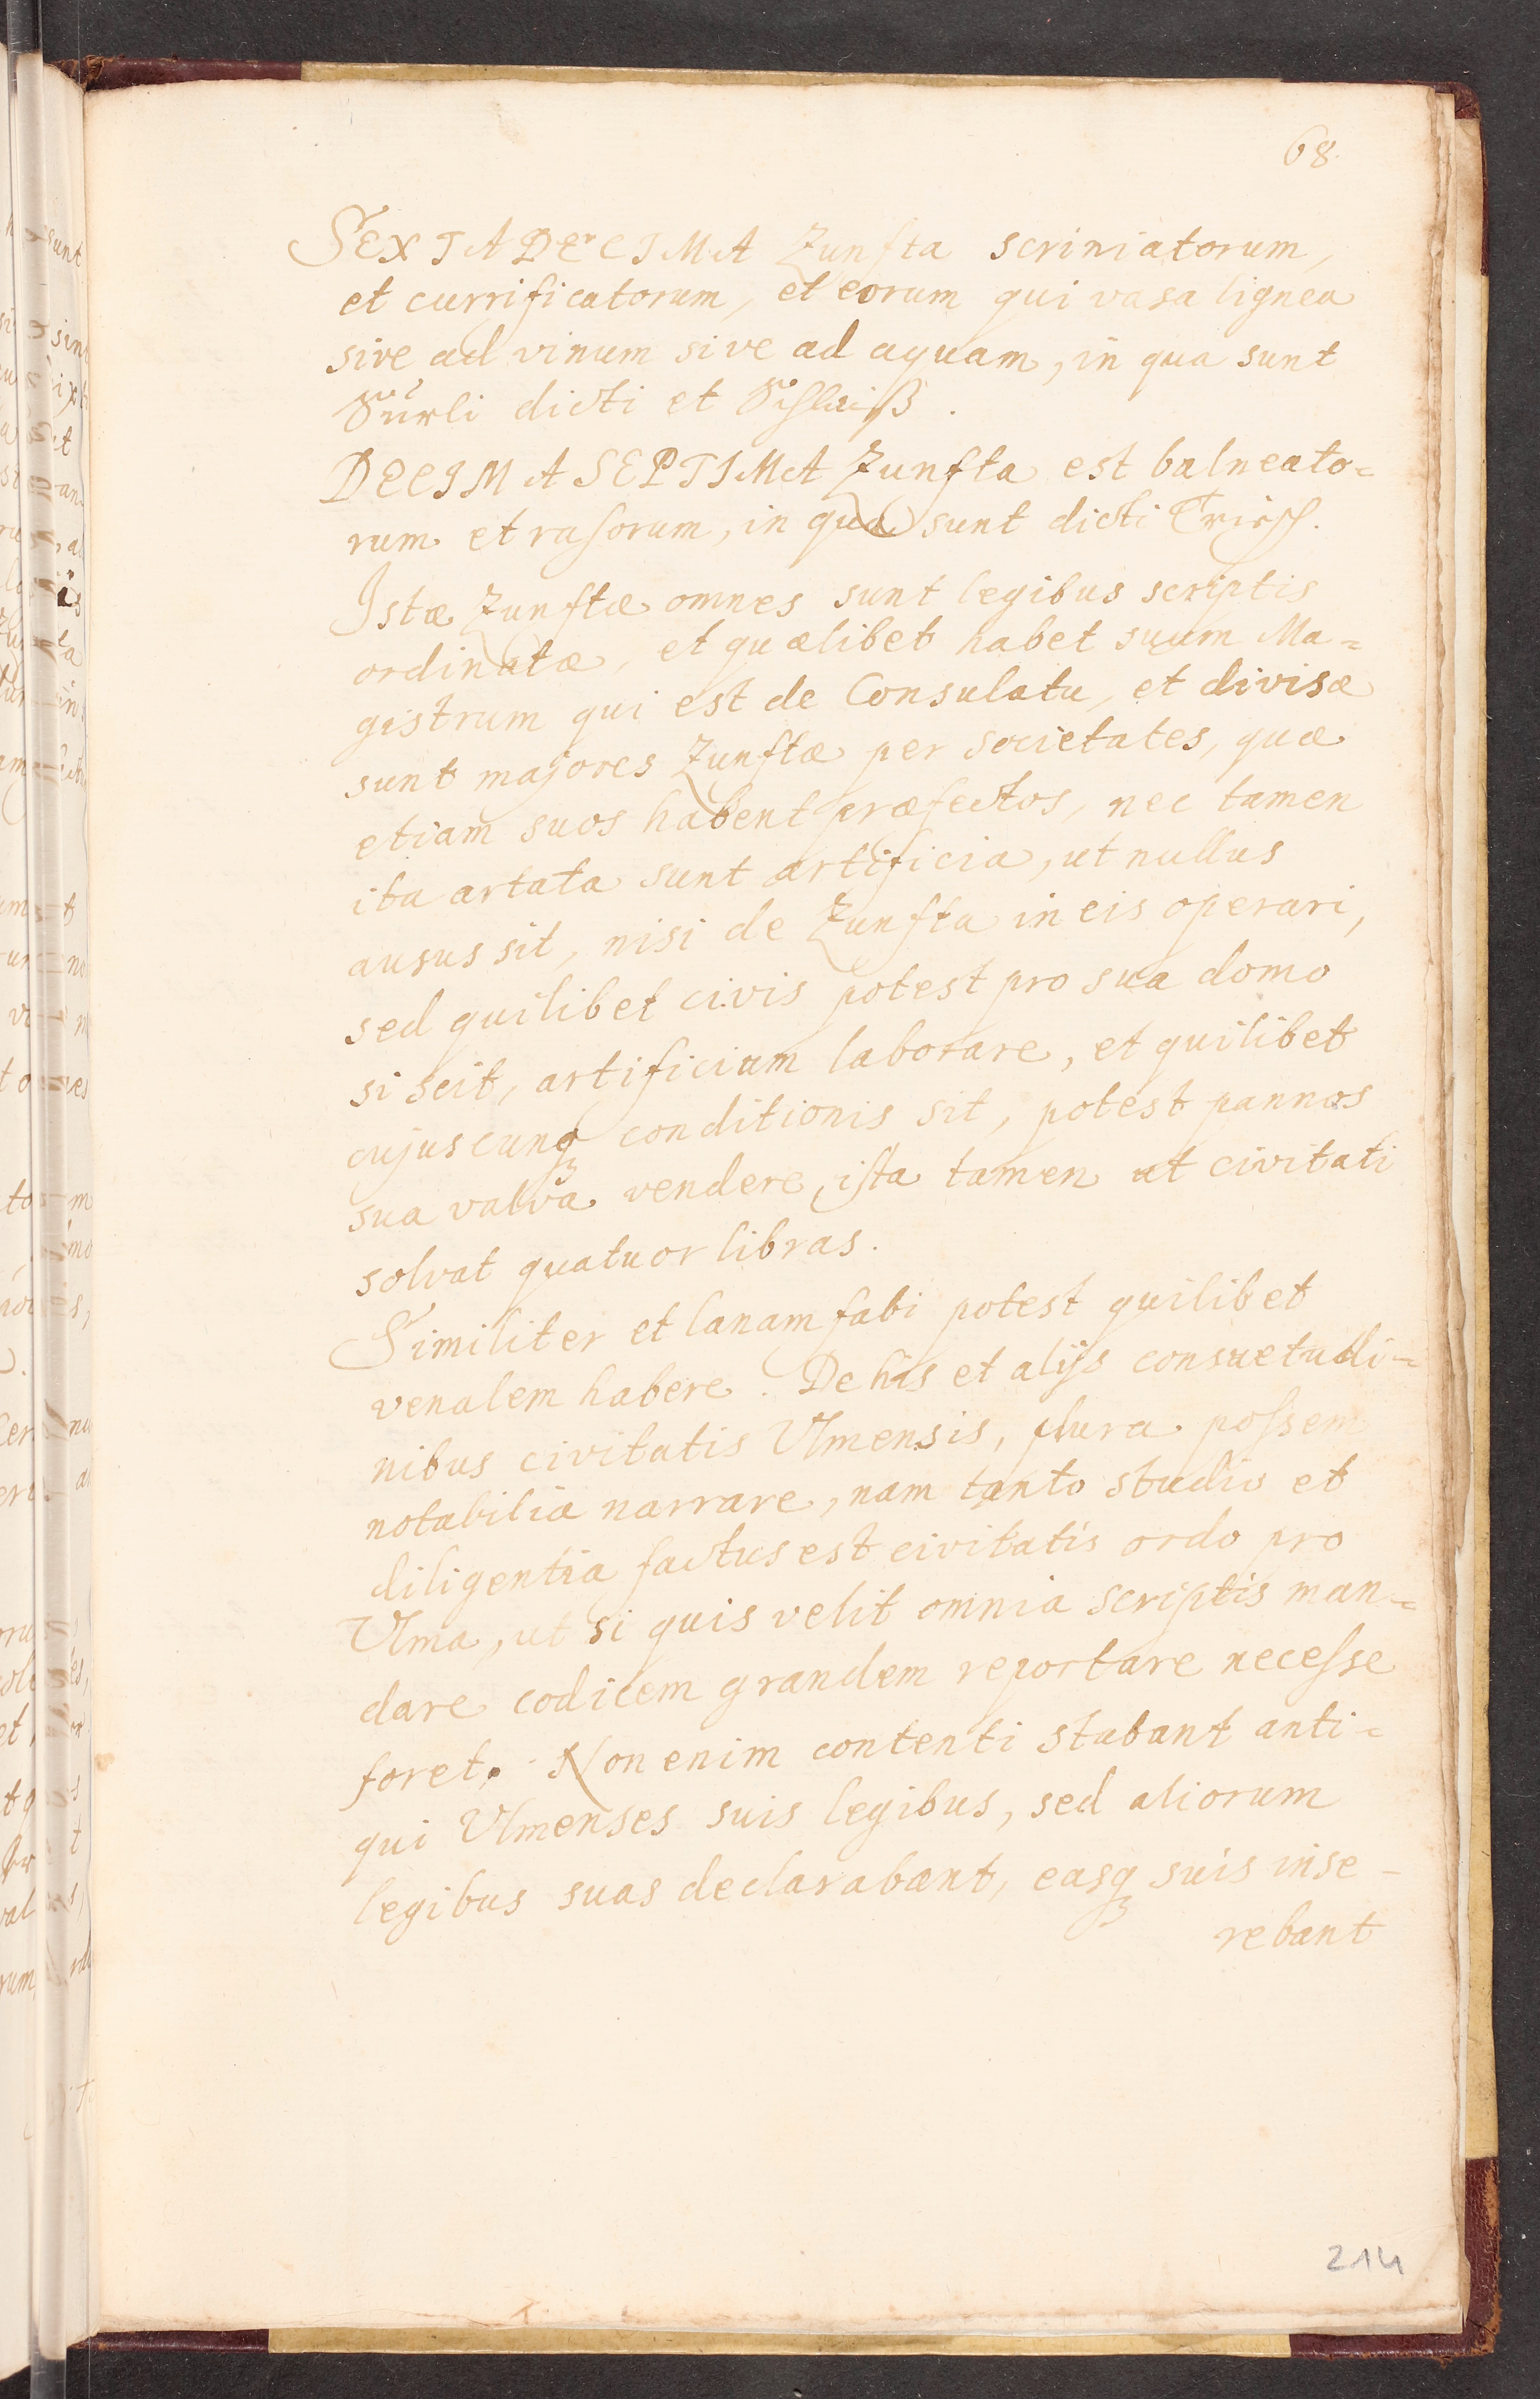 68.
SEXTA DECIMA Zunfta scriniatorum,
et currificatorum, et eorum qui vasa lignea
sive ad vinum sive ad aquam, in qua sunt
Sürli dicti et Schleiß.
DECIMA SEPTIMA Zunfta est balneato=
rum et rasorum, in qua sunt dicti
Istæ Zunftæ omnes sunt legibus scriptis
ordinatæ, et quælibet habet suum Ma=
gistrum qui est de Consulatu, et divisæ
sunt majores Zunftæ per societates, quæ
etiam suos habent præfectos, nec tamen
ita artata sunt artificia, ut nullus
ausus sit, nisi de Zunfta in eis operari,
sed quilibet civis potest pro sua domo
si scit, artificium laborare, et quilibet
cujuscunq₃ conditionis sit, potest pannos
sua valva vendere, ista tamen ut civitati
solvat quatuor libras.
Similiter et lanam fabi potest quilibet
venalem habere. De his et alijs consuetudi=
nibus civitatis Ulmensis, plura possem
notabilia narrare, nam tanto studio et
diligentia factus est civitatis ordo pro
Ulma, ut si quis velit omnia scriptis man=
dare codicem grandem reportare necesse
foret. Non enim contenti stabant anti=
qui Ulmenses suis legibus, sed aliorum
legibus suas declarabant, easq₃ suis inse-
rebant
214